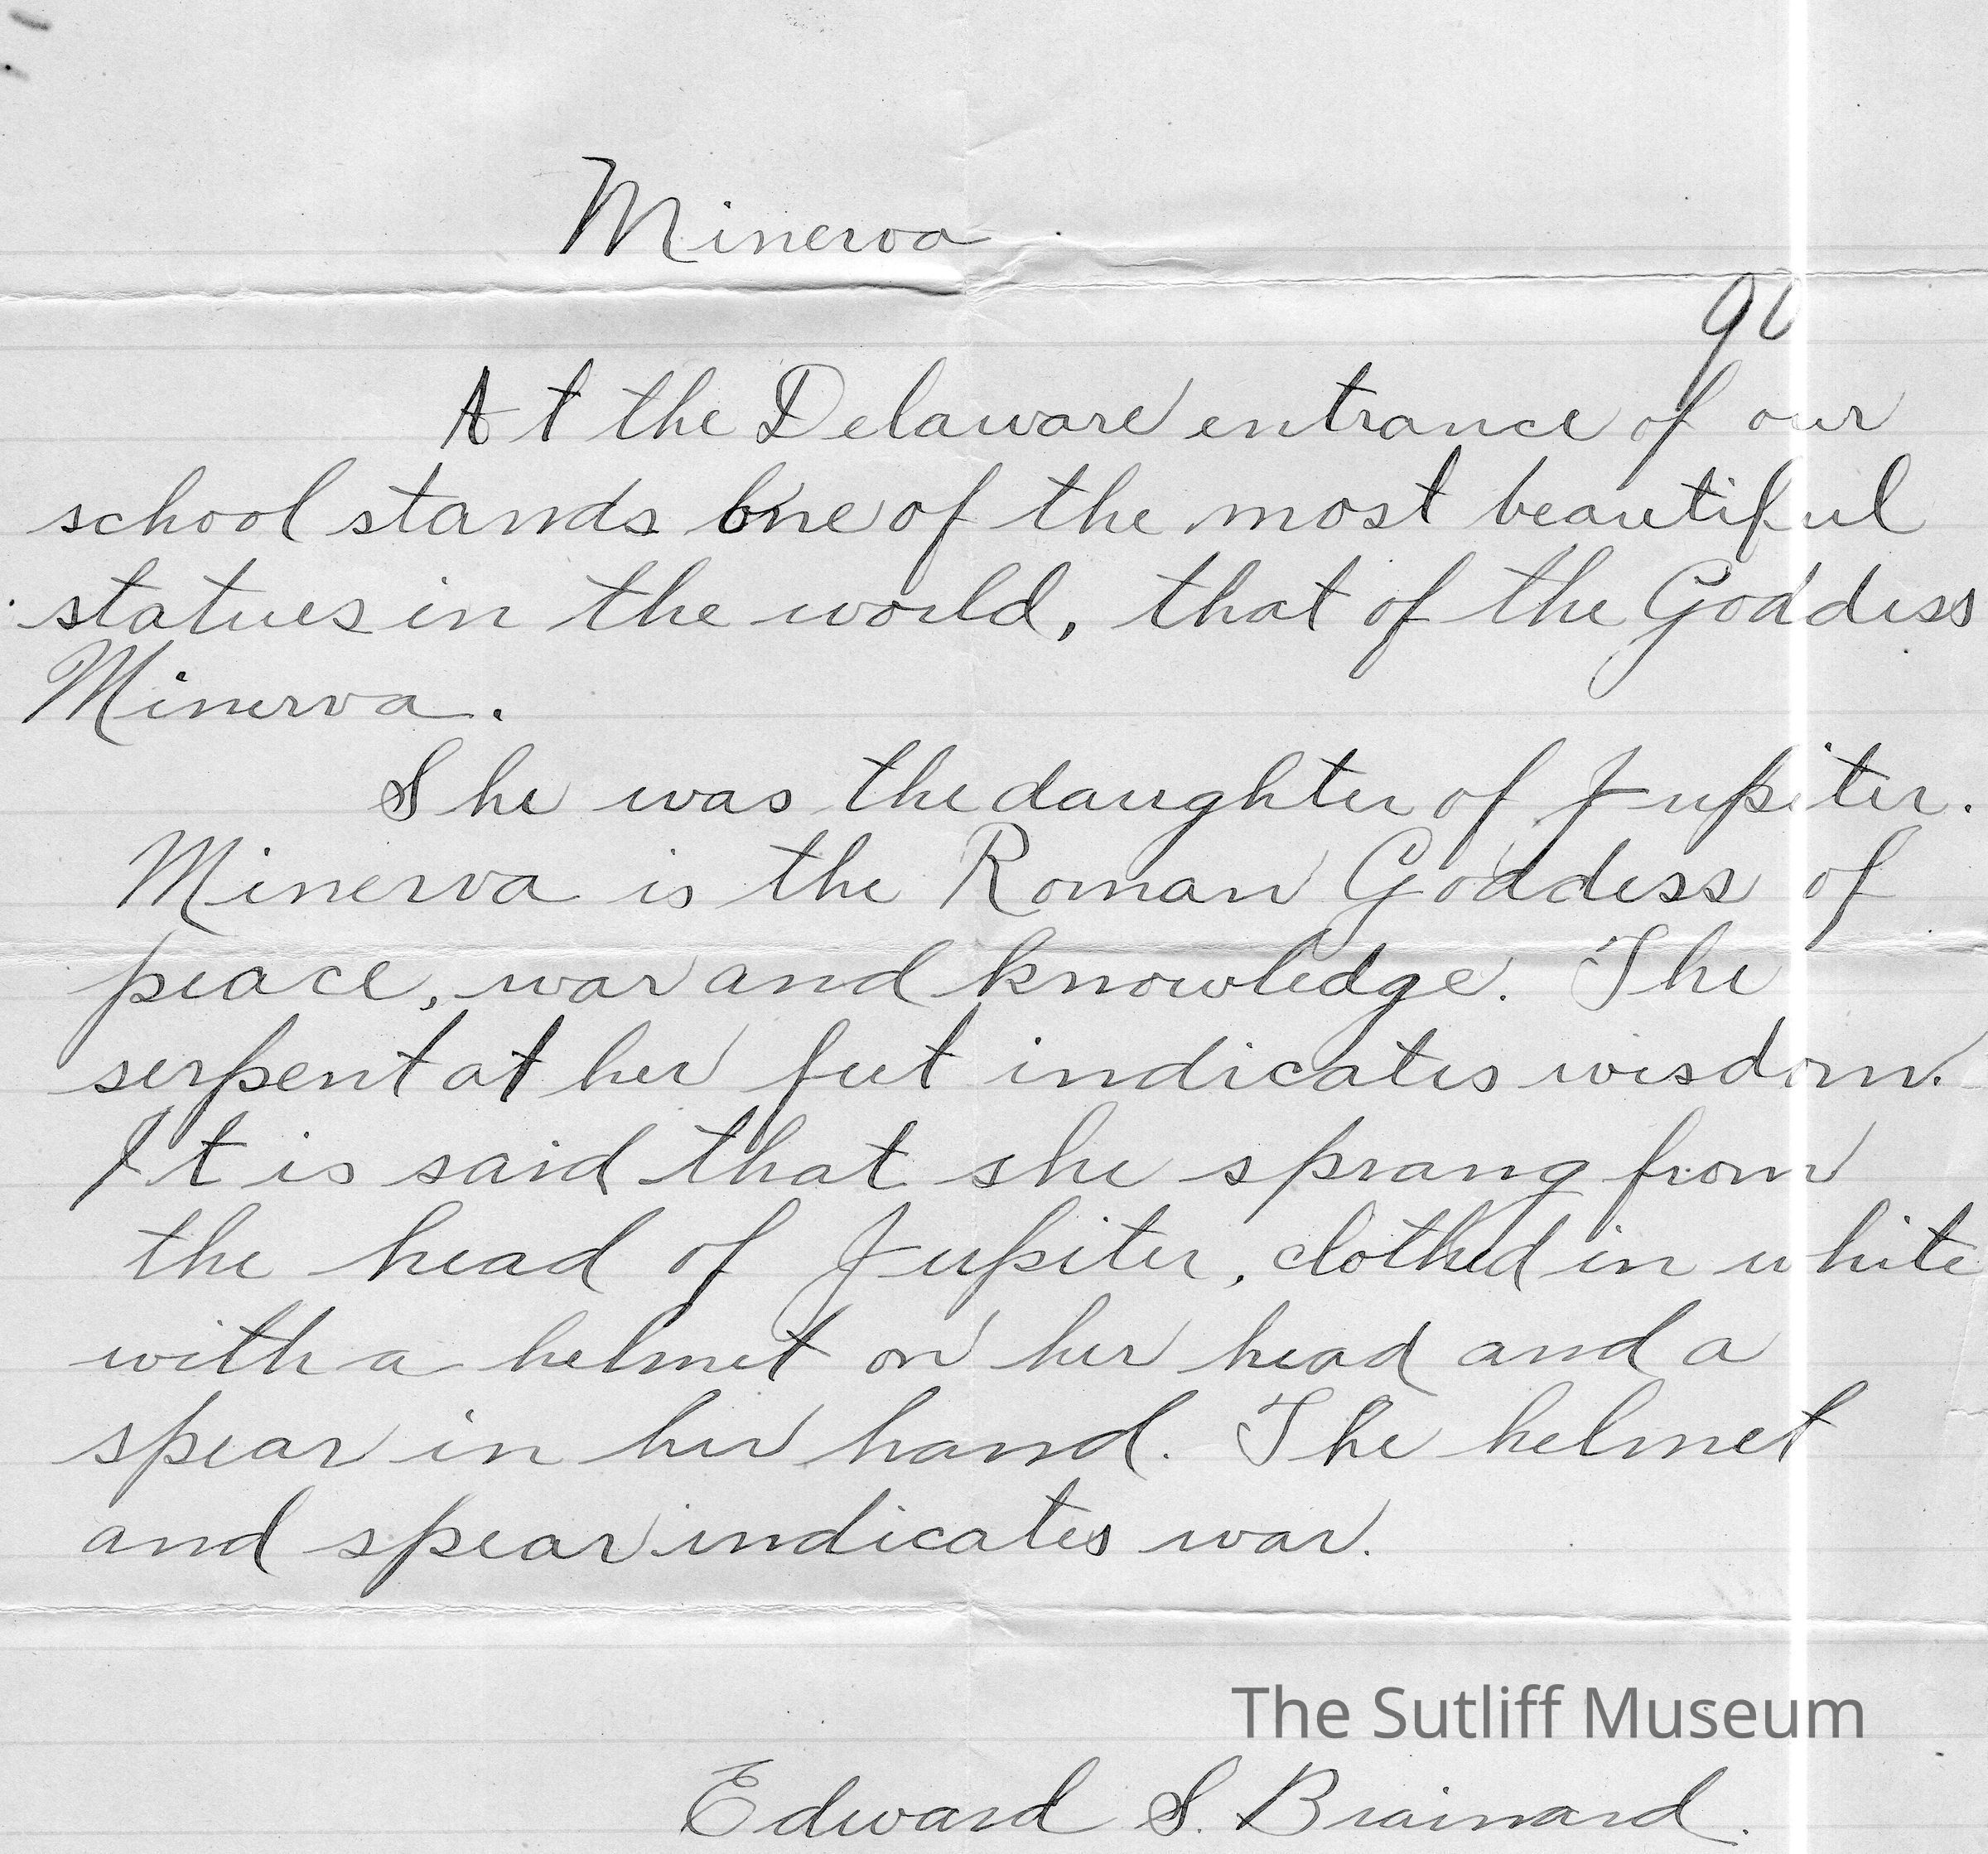 Minerva
90
At the Delaware entrance of our
school stands one of the most beautiful
statues in the world, that of the Goddess
Minerva.
She was the daughter of Jupiter.
Minerva is the Roman Goddess of
peace, war and knowledge. The
serpent at her feet indicates wisdom.
It is said that she sprang from
the head of Jupiter, clothed in white
with a helmet on her head and a
spear in her hand. The helmet
and spear indicates war.
The Sutliff Museum
Edward S. Brainard.